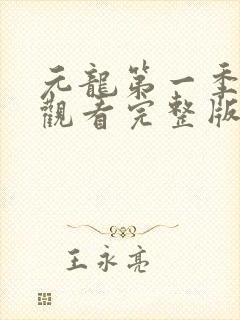 元龍第一季
觀看完整版
王永亮